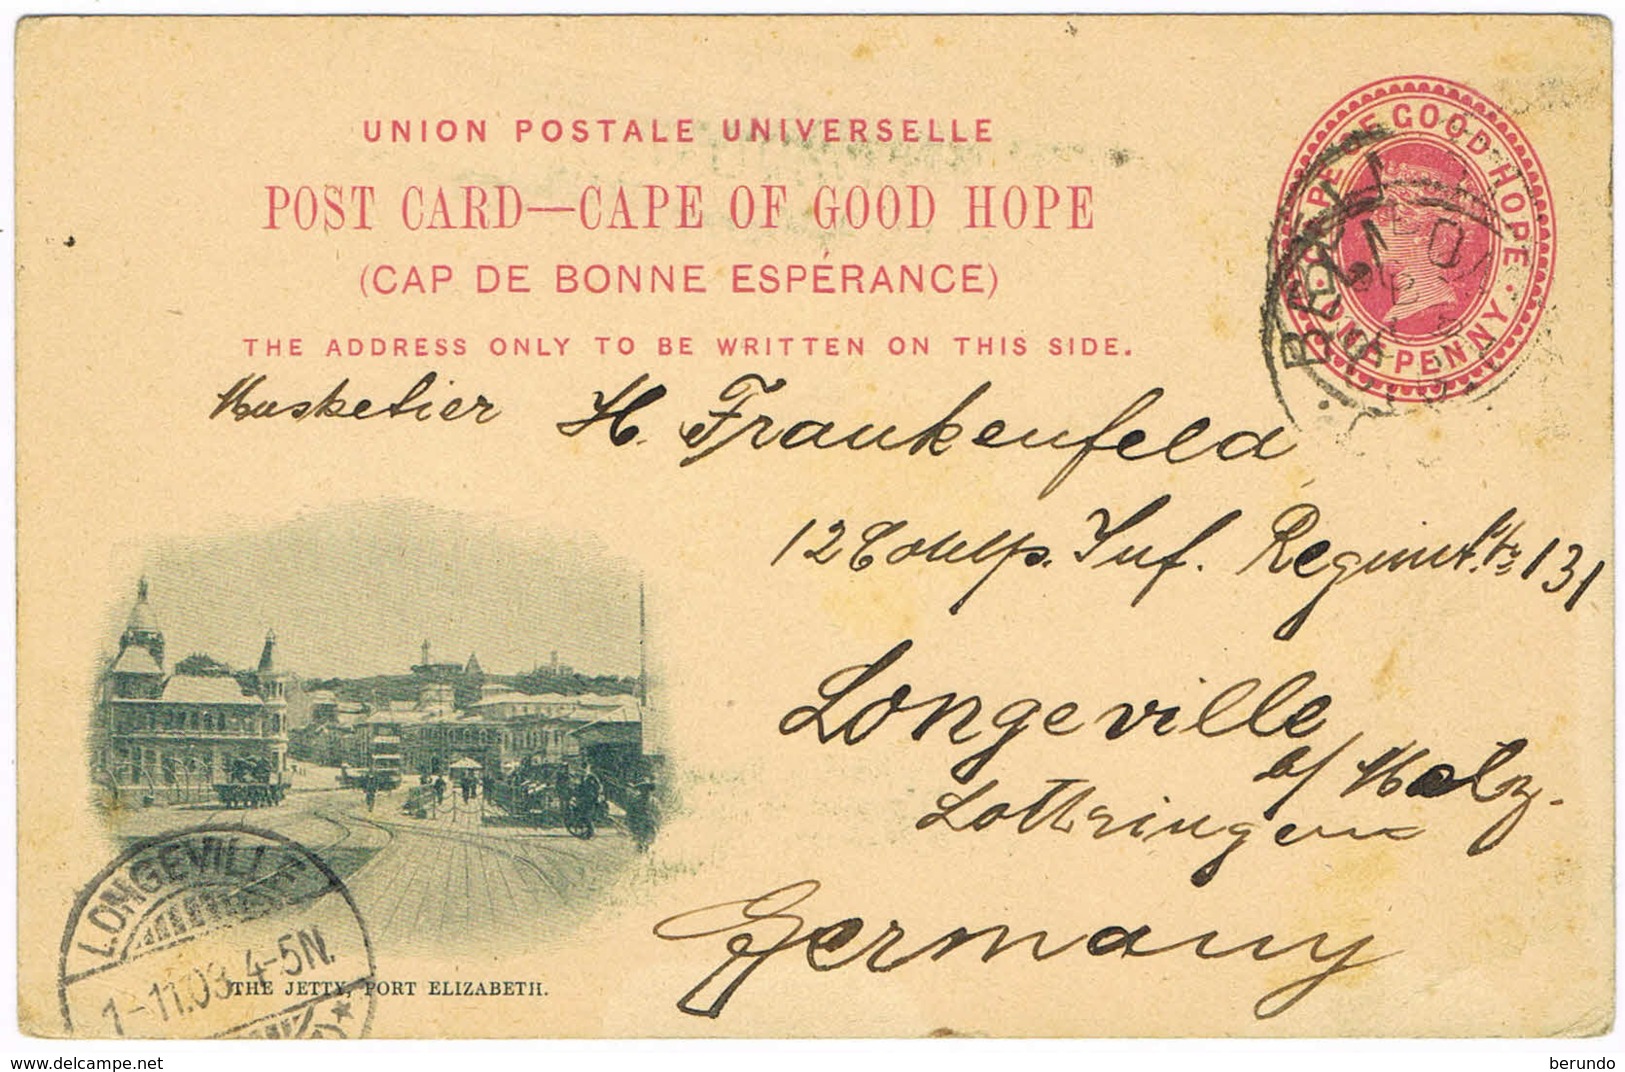 UNION POSTALE UNIVERSELLE
POST CARD—CAPE OF GOOD HOPE
(CAP DE BONNE ESPÉRANCE)
THE ADDRESS ONLY TO BE WRITTEN ON THIS SIDE.
CAPE OF GOOD HOPE
ONE PENNY
Musketier H. Frankenfeld
12 Comp. Inf. Regimt. Nr 131
Longeville
b/ Metz.
Lothringen
Germany
LONGEVILLE
1-11.03. 4-5N.
THE JETTY, PORT ELIZABETH.
www.delcampe.net
berundo